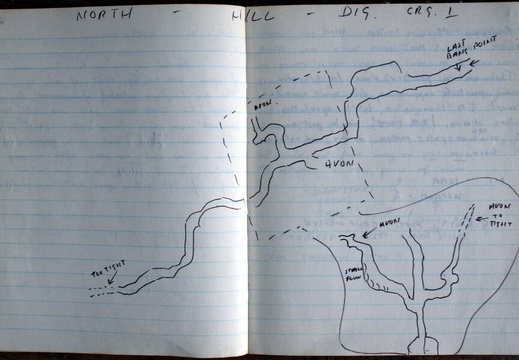 NORTH - HILL - DIG. CRG. 1
LAST
GANG POINT
AVON
AVON
TOO TIGHT
AVON
AVON
TO
TIGHT
FLOW